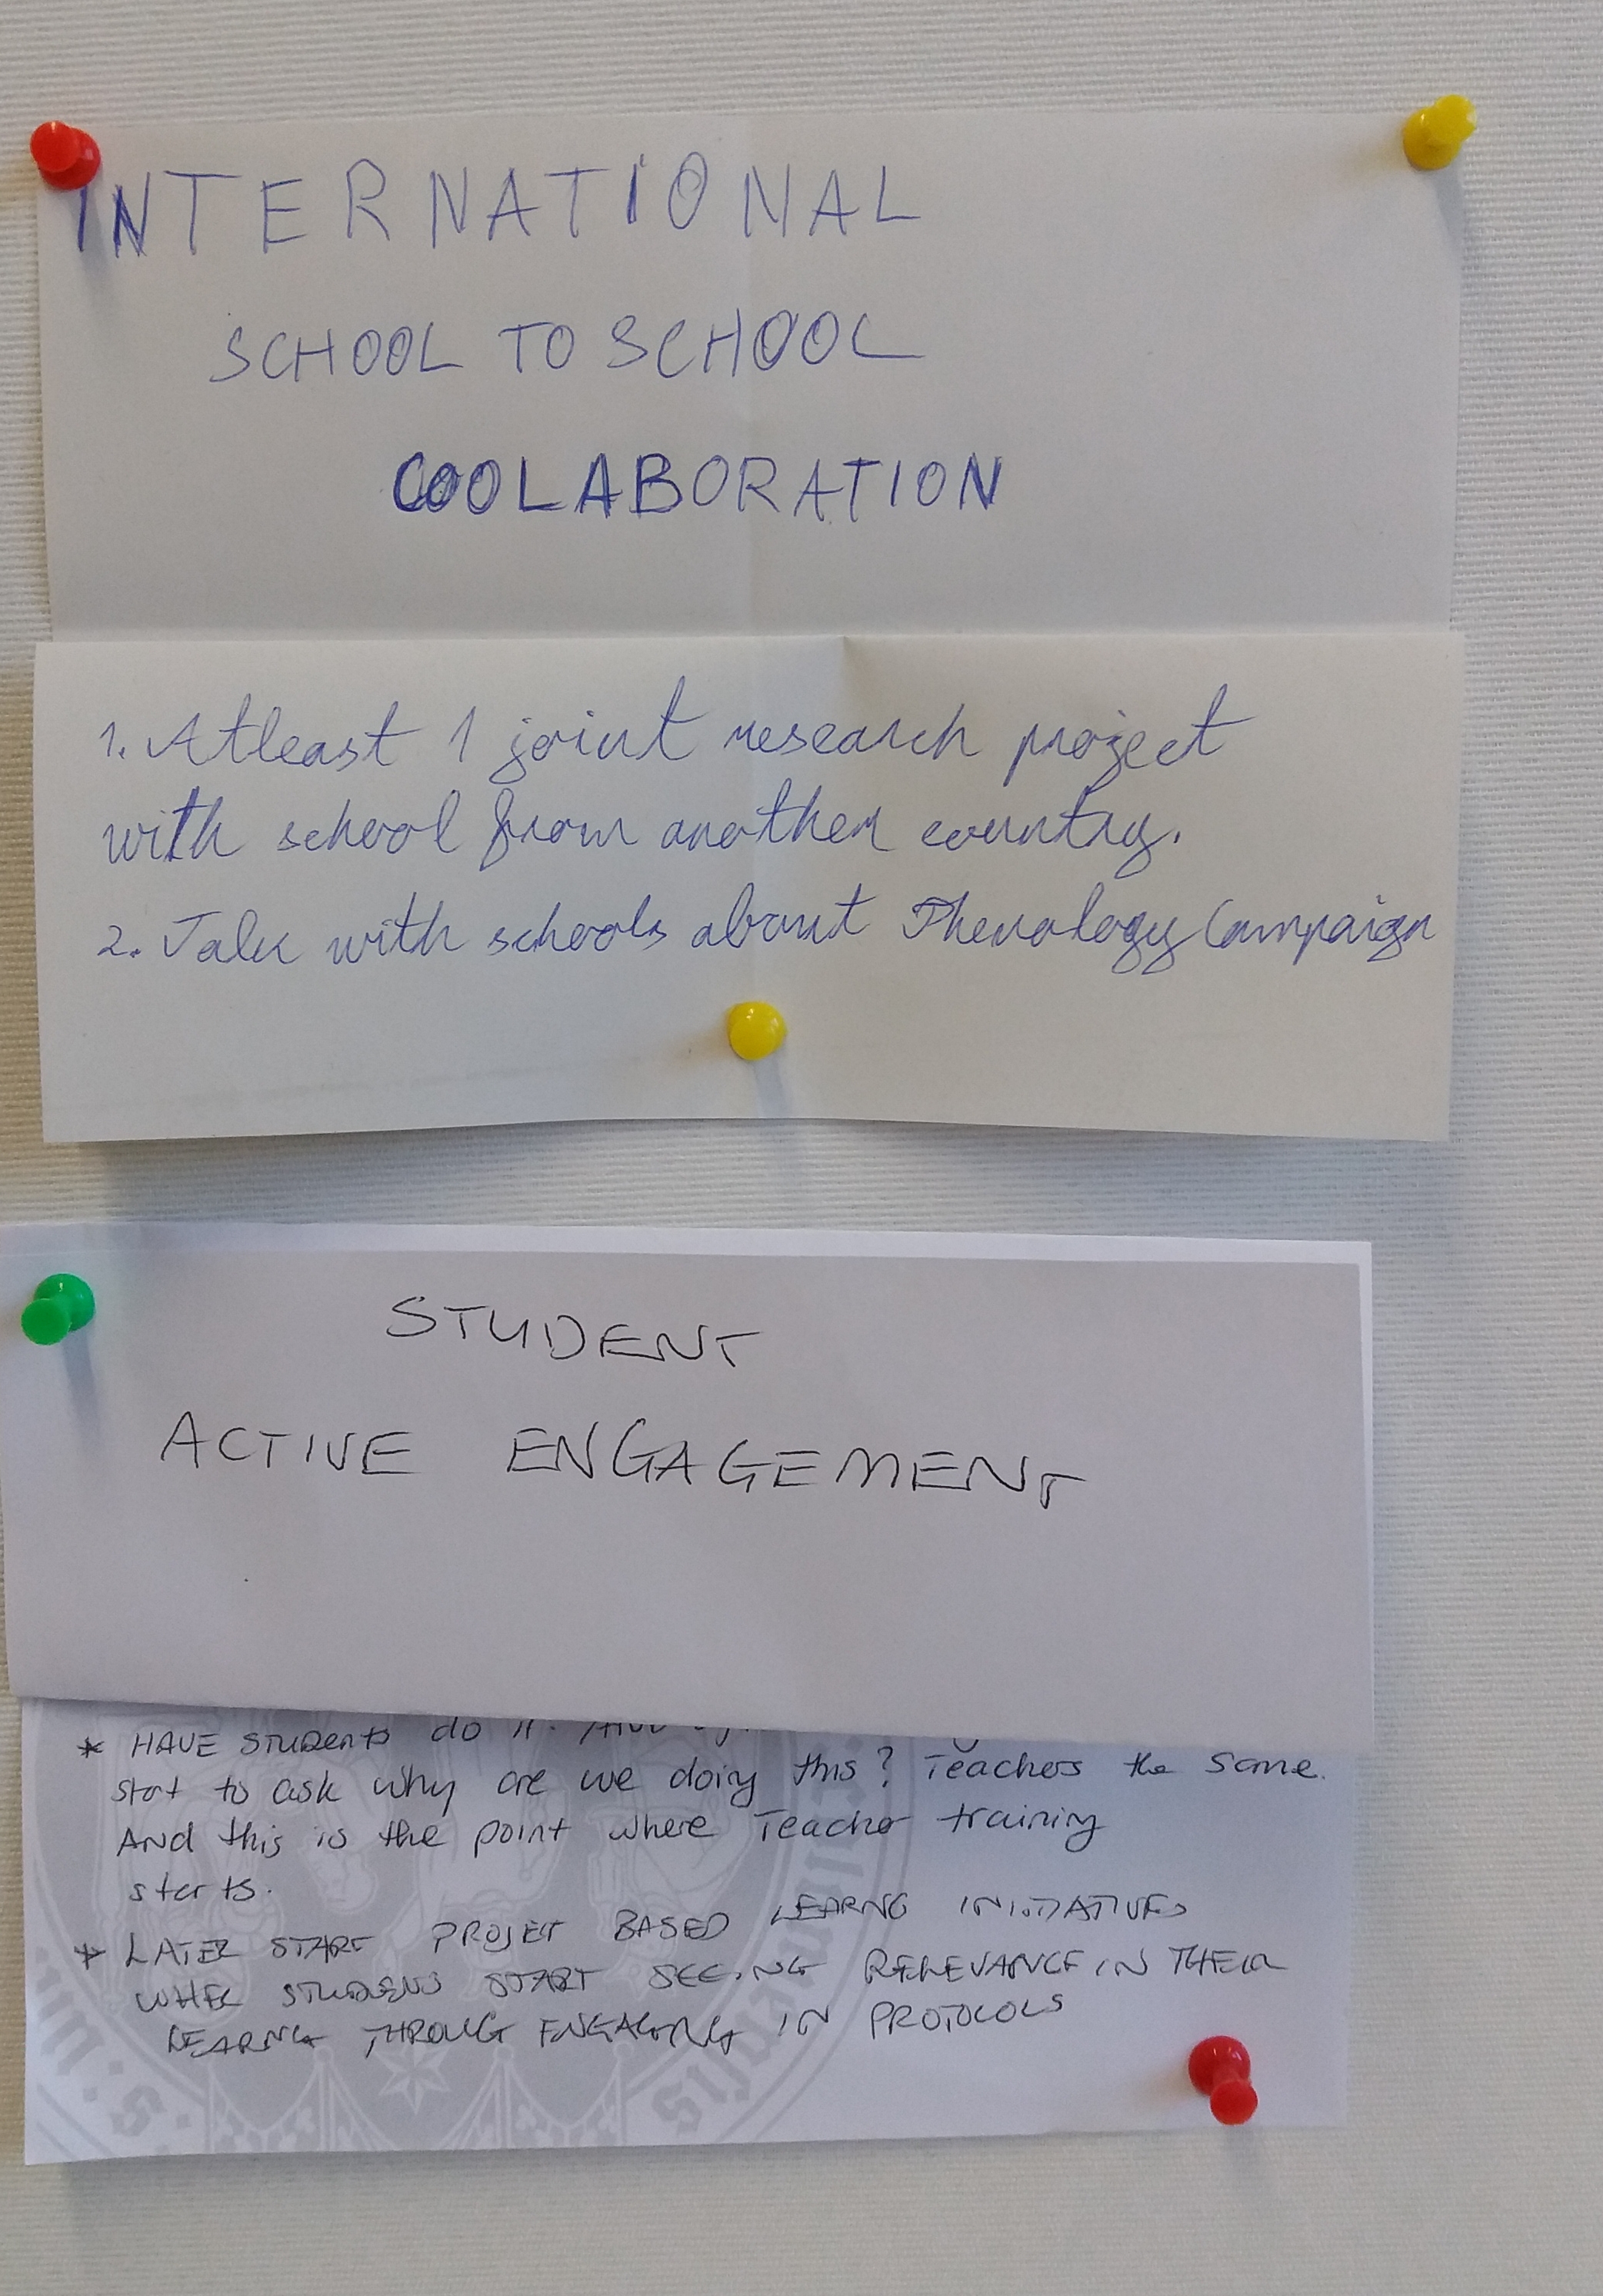 INTERNATIONAL
SCHOOL TO SCHOOL
COOLABORATION
1. Atleast 1 joint research project
with school from another country.
2. Talk with schools about Phenology Campaign
STUDENT
ACTIVE ENGAGEMENT
* HAVE STUDENTS do it.
start to ask why are we doing this? Teachers the same.
AND this is the point where Teacher training
starts.
* LATER START PROJECT BASED LEARNG INITIATIVES
WHEN STUDENTS START SEEING RELEVANCE IN THEIR
LEARNG THROUG ENGAGING IN PROTOCOLS